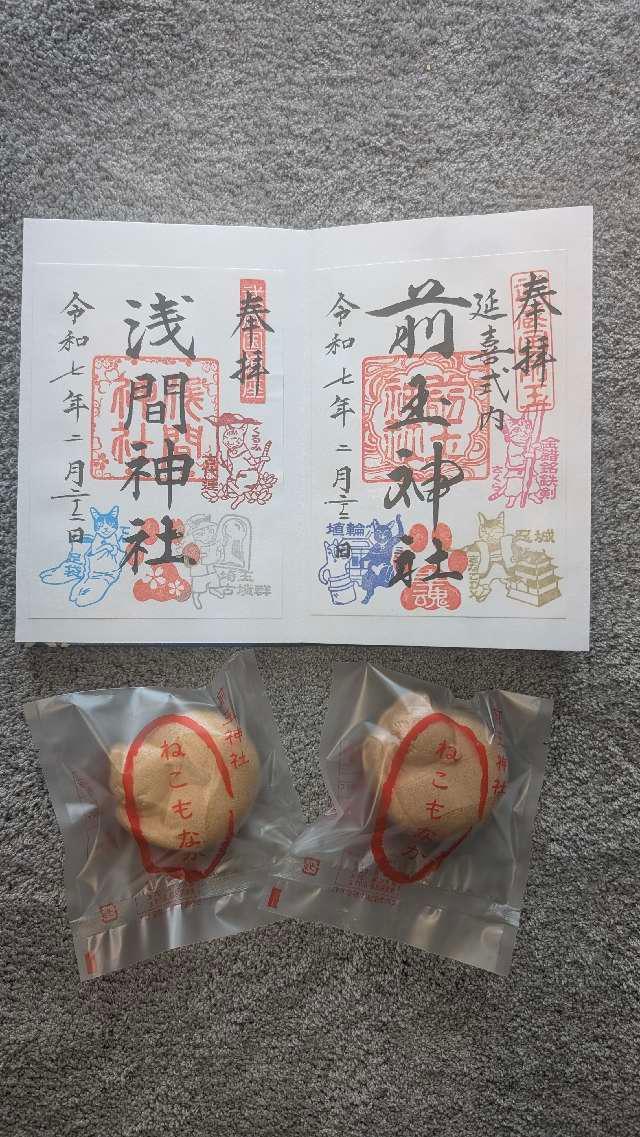 奉拝
延喜式内
前玉神社
令和七年二月二十二日
金錯銘鉄剣
さくら
忍城
埴輪
魂
奉拝
浅間神社
令和七年二月二十二日
くるみ
古代蓮
足袋
埼玉
古墳群
玉神社
ねこもなか
玉神社
ねこもなか